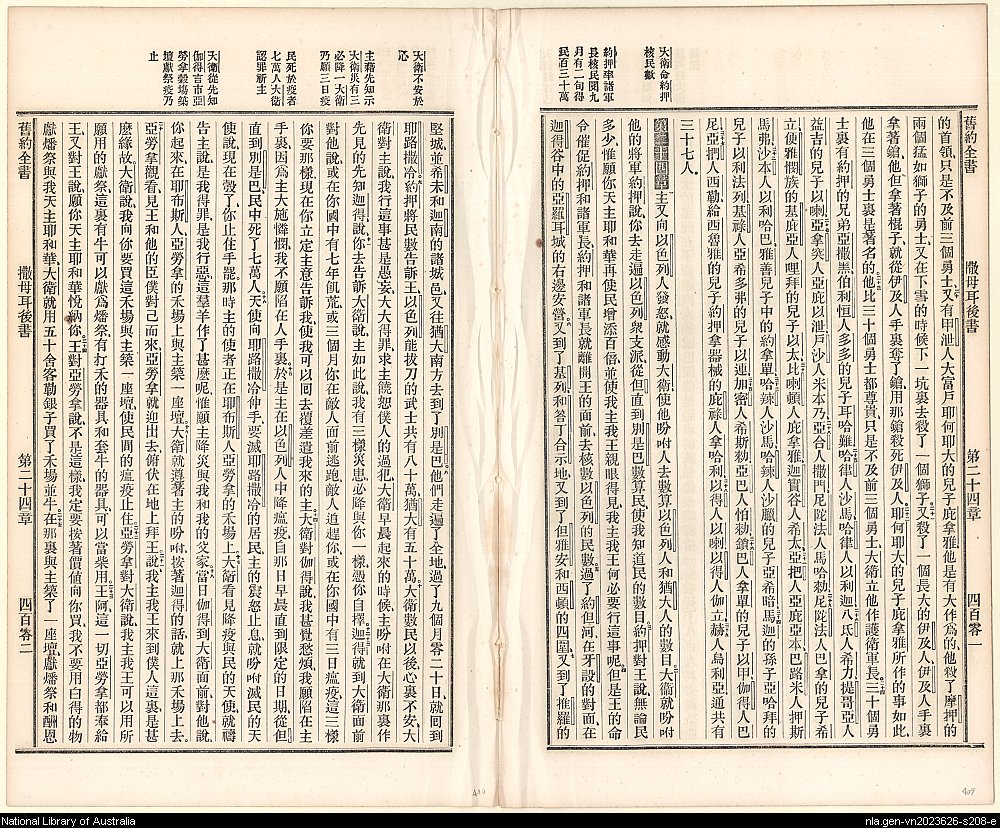 舊約全書 撒母耳後書 第二十四章 四百零一
大衛命約押核民數
約押率諸軍長核民閱九月有二旬得民百三十萬
的首領、只是不及前三個勇士、又有甲泄人大富戶耶何耶大的兒子庇拿雅他是有大作爲的他殺了摩押的
兩個猛如獅子的勇士又在下雪的時候下一坑裏去殺了一個獅子又殺了一個長大的伊及人伊及人手裏
拿著鎗他但拿著棍子就從伊及人手裏奪了鎗用那鎗殺死伊及人耶何耶大的兒子庇拿雅所作的事如此、
他在三個勇士裏是著名的他比三十個勇士都尊貴只是不及前三個勇士大衛立他作護衛軍長三十個勇
士裏有約押的兄弟亞撒黑伯利恒人多多的兒子耳哈難哈律人沙馬哈律人以利迦八氐人希力提哥亞人
益吉的兒子以喇亞拿突人亞庇以泄戶沙人米本乃亞合人撒門尼陀法人馬哈勑尼陀法人巴拿的兒子希
立使雅憫族的基庇亞人哩拜的兒子以太比喇頓人庇拿雅迦實谷人希太亞把人亞庇亞本巴路米人押斯
馬弗沙本人以利哈巴雅善兒子中的約拿單哈辣人沙馬哈辣人沙臘的兒子亞希暗馬迦的孫子亞哈拜的
兒子以利法列基祿人亞希多弗的兒子以連加密人希斯勑亞巴人怕勑鎖巴人拿單的兒子以甲伽得人巴
尼亞捫人西勒給西魯雅的兒子約押拿器械的庇祿人拿哈利以得人以喇以得人伽立赫人烏利亞通共有
三十七人、
第二十四章 主又向以色列人發怒就感動大衛使他吩咐人去數算以色列人和猶大人的數目大衛就吩咐
他的將軍約押說你去走遍以色列衆支派從但直到別是巴數算民使我知道民的數目約押對王說無論民
多少惟願你天主耶和華再使民增添百倍並使我主我王親眼得見我主我王何必要行這事呢但是王的命
令催促約押和諸軍長約押和諸軍長就離開王的面前去核數以色列的民數過了約但河在牙設的對面在
迦得谷中的亞羅耳城的右邊安營又到了基列和答丁合示地又到了但雅安和西頓的四圍又到了推羅的
堅城並希未和迦南的諸城邑又往猶大南方去到了別是巴他們走遍了全地過了九個月零二十日就囘到
耶路撒冷約押將民數告訴王以色列能拔刀的武士共有八十萬猶大有五十萬大衛數民以後心裏不安大
衛對主說我行這事甚是愚妄大大得罪求主饒恕僕人的過犯大衛早晨起來的時候主吩咐在大衛那裏作
先見的先知迦得說你去告訴大衛說主如此說我有三樣災患必降與你一樣憑你自擇迦得就到大衛面前
對他說或在你國中有七年飢荒或三個月你在敵人面前逃跑敵人追趕你或在你國中有三日瘟疫這三樣
你要那樣現在你立定主意告訴我使我可以囘去覆差遣我來的主大衛對伽得說我甚覺愁煩我願陷在主
手裏因爲主大施憐憫我不願陷在人手裏於是主在以色列人中降瘟疫自那日早晨直到限定的日期從但
直到別是巴民中死了七萬人天使向耶路撒冷伸手要滅耶路撒冷的居民主的震怒止息就吩咐滅民的天
使說現在彀了你止住手罷那時主的使者正在耶布斯人亞勞拿的禾場上大衛看見降疫與民的天使就禱
告主說是我得罪是我行惡這羣羊作了甚麼呢惟願主降災與我和我的父家當日伽得到大衛面前對他說
你起來在耶布斯人亞勞拿的禾場上與主築一座壇大衛就遵著主的吩咐按著迦得的話就上那禾場上去、
亞勞拿觀看見王和他的臣僕對己而來亞勞拿就迎出去俯伏在地上拜王說我主我王來到僕人這裏是甚
麼緣故大衛說我向你要買這禾場與主築一座壇使民間的瘟疫止住亞勞拿對大衛說我主我王可以用所
願用的獻祭這裏有牛可以獻爲燔祭有打禾的器具和套牛的器具可以當柴用王阿這一切亞勞拿都奉給
王又對王說願你天主耶和華悅納你王對亞勞拿說不是這樣我定要按著價值向你買我不要用白得的物
獻燔祭與我天主耶和華大衛就用五十舍客勒銀子買了禾場並牛在那裏與主築了一座壇獻燔祭和酬恩
大衛不安於心
主藉先知示大衛災有三必降一大衛乃願三日疫
民死於疫者七萬人大衛認罪祈主
大衛從先知伽得言市亞勞拿穀場築壇獻祭疫乃止
舊約全書 撒母耳後書 第二十四章 四百零二
410
409
National Library of Australia
nla.gen-vn2023626-s208-e